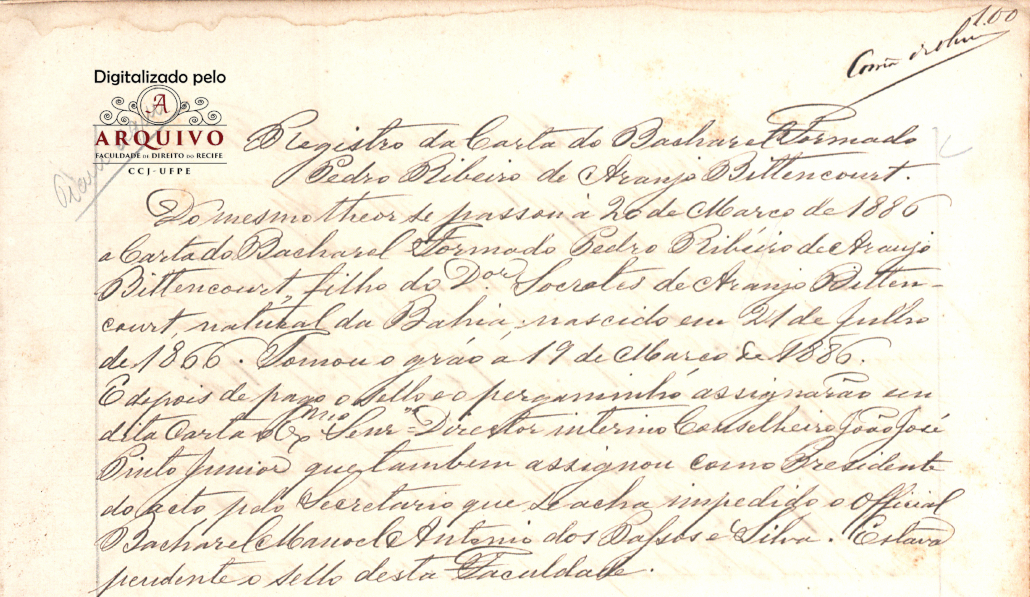 100
Digitalizado pelo
A
ARQUIVO
FACULDADE DE DIREITO DO RECIFE
CCJ-UFPE
Registro da Carta do Bacharel Formado
Pedro Ribeiro de Araujo Bittencourt.
Do mesmo theor se passou a 20 de Março de 1886
a Carta do Bacharel Formado Pedro Ribeiro de Araujo
Bittencourt, filho do Dor Socrates de Araujo Bitten-
court, natural da Bahia, nascido em 21 de Julho
de 1866. Tomou o gráo á 19 de Março de 1886.
E depois de pago o sello e o pergaminho assignarão em
dita Carta o Exmo Senr Director interino Conselheiro João José
Pinto Junior que tambem assignou como Presidente
do acto pelo Secretario que se acha impedido o Official
Bacharel Manoel Antonio dos Passos e Silva. Estava
pendente o sello desta Faculdade.